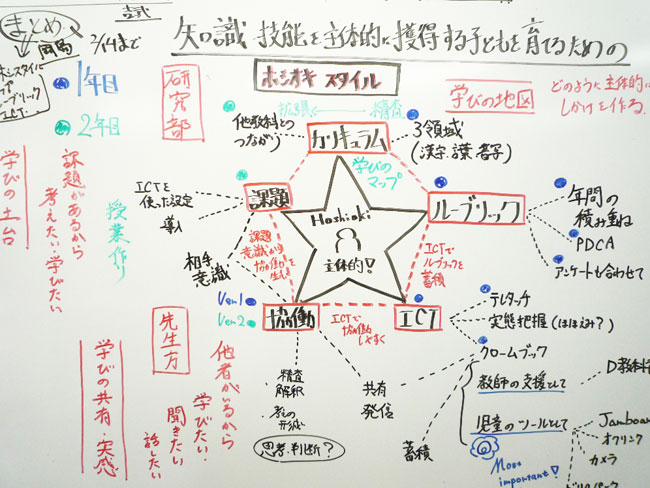 まとめ
2/14まで
ホシスタイル
ルーブリック
ICT
知識・技能を主体的に獲得する子どもを育てるための
ホシオキ スタイル
1年目
2年目
研究部
学びの地図
どのように主体的に
しかけを作る
拡張
精査
他教科との
つながり
カリキュラム
3領域
学びの
マップ
課題
ルーブリック
年間の
積み重ね
PDCA
アンケートも合わせて
ICTを
使った設定
導入
Hoshioki
主体的!
課題
意識から
協働を
生む
ICTで
ルーブリックを
蓄積
相手
意識
学びの土台
課題があるから
考えたい・学びたい
授業作り
Ver.1
Ver.2
協働
ICTで
協働
しやすく
ICT
テレタッチ
実態把握(ほほえみ?)
クロームブック
教師の支援として
D教科
児童のツールとして
Jamboar
オクリンク
カメラ
Most
important!
先生方
学びの共有・実感
他者がいるから
学びたい
聞きたい
話したい
精査
解釈
考えの
形成
思考・判断?
共有
発信
蓄積